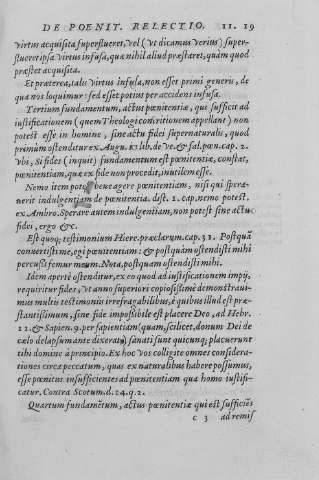 DE POENIT. RELECTIO. 11. 19
virtus acquisita superflueret, vel (vt dicamus verius) super-
flueret ipsa virtus infusa, quæ nihil aliud præstaret, quàm quod
præstet acquisita.
Et præterea, talis virtus infusa, non esset primi generis, de
qua nos loquimur: sed esset potius per accidens infusa.
Tertium fundamentum, actus pœnitentiæ, qui sufficit ad
iustificationem (quem Theologi contritionem appellant) non
potest esse in homine, sine actu fidei supernaturalis, quod
primùm ostenditur ex Augu. li. de ve. & fal. pœn. cap. 2.
vbi, Si fides (inquit) fundamentum est pœnitentiæ, constat,
pœnitentiam, quæ ex fide non procedit, inutilem esse.
Nemo item potest bene agere pœnitentiam, nisi qui spera-
uerit indulgentiam de pœnitentia. dist. 1. cap. nemo potest,
ex Ambro. Sperare autem indulgentiam, non potest sine actu
fidei, ergo &c.
Est quoq; testimonium Hiere. præclarum. cap. 31. Postquã
conuertisti me, egi pœnitentiam: & postquàm ostendisti mihi
percussi femur meum. Nota, postquam ostendisti mihi.
Idem apertè ostenditur, ex eo quod ad iustificationem impij,
requiritur fides, vt anno superiori copiosissimè demonstraui-
mus multis testimonijs irrefragabilibus, è quibus illud est præ-
stantissimum, sine fide impossibile est placere Deo, ad Hebr.
11. & Sapien. 9. per sapientiam (quam, scilicet, donum Dei de
cælo delapsum ante dixerat) sanati sunt quicunq; placuerunt
tibi domine à principio. Ex hoc vos colligite omnes considera-
tiones circa peccatum, quas ex naturalibus habere possumus,
esse pœnitus insufficientes ad pœnitentiam qua homo iustifi-
catur. Contra Scotum. d. 14. q. 2.
Quartum fundamẽtum, actus pœnitentiæ qui est sufficiẽs
c 3 ad remis